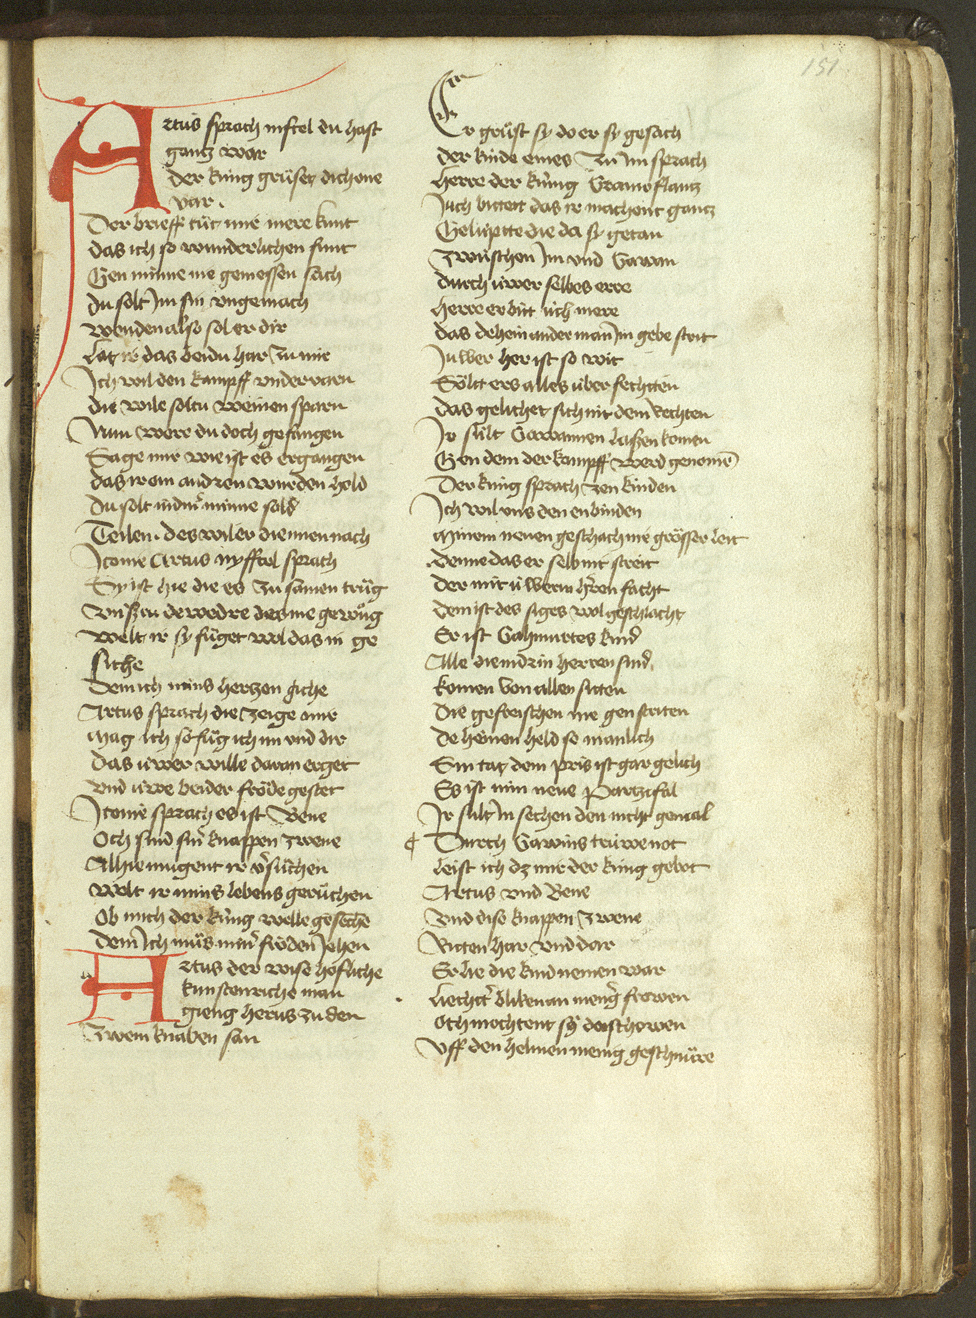 151
Artus sprach niftel du hast
gantz war
der kúnig grúset dich one
var.
Der brieff tůt mir mere kunt
das ich so wunderlichen funt
Gen minne nie gemessen sach
du solt Im sin vngemach
wenden also sol er dir
Lat ir das beidu har zu mir
Ich wil den kampff vndervarn
die wile soltu weinen sparn
Nun were du doch gefangen
Sage mir wie ist es ergangen
das ir ein andren wurden hold
du solt
minne sold
Teilen des wil er dienen nach
Itonie Artus nyfftel sprach
Sy ist hie die es zu samen trůg
welt ir sy fůget wol das in ge
siche
Dem ich mins hertzen giche
Artus sprach die zeige mir
mag ich so fůg ich im vnd dir
das úwer wille daran erget
vnd úwe beider fröde gestet
Itonie sprach es ist Bene
Och sind sin knappen zwene
Alhie mugent ir v̾sůchen
welt ir mins lebens gerůchen
Ob mich der kúng welle gesechē
dem Ich můs miner fröden Jehen
Artus der wise höfliche
kunstenriche man
gieng herus zu den
zwein knaben san
Er grůst sy do er sy gesach
der kinde eines zu im sprach
Herre der kúnig Gramoflantz
Juch bittert das ir machent gantz
Gelúptte die da sy getan
zwúschen Im vnd Gawan
durch úwer selbes erre
herre er bitt úch mere
das dehein ander man Im gebe strit
Juwer her ist so wit
Sölt ers alles úber fechtten
das gelichet sich nit dem rechten
Ir súlt Gawannen laßen komen
Gen dem der kampff werd genomē
Der kúng sprach zen kinden
Ich wil vns den enbinden
Minem neuen geschach nie grösser leit
denne das er selb nit streit
der mit úwerm h̾ren facht
dem ist des siges wol geschlacht
Er ist Gahmuretes kind
Alle die indrin herren sind
komen von allen sitten
Die gefreischen nie gen striten
deheinen held so manlich
Sin tat dem pris ist gar gelich
Es ist min neue Partzifal
Ir sult In sechen den nicht gemal
Durch Gawins trúwe not
leist ich dz mir der kúng gebot
Artus vnd Bene
vnd dise knappen zwene
Ritten har vnd dar
Er lie die kind nemen war
liecht̾ bliken an meng̾ frowen
Och mochtent sy da schowen
Vff den helmen menig geschnúre